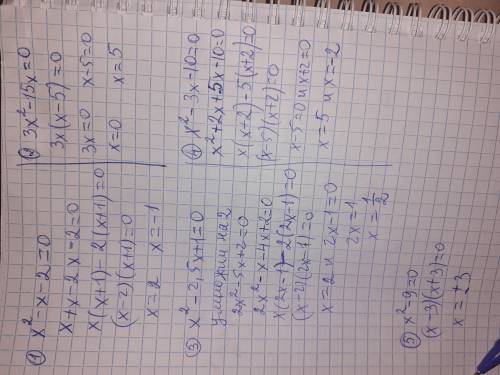 ① x² - x - 2 = 0
x + x - 2x - 2 = 0
x(x+1) - 2(x+1) = 0
(x-2)(x+1) = 0
x = 2 x = -1
② 3x² - 15x = 0
3x(x-5) = 0
3x = 0 x-5 = 0
x = 0 x = 5
③ x² - 2,5x + 1 = 0
умножим на 2
2x² - 5x + 2 = 0
2x² - x - 4x + 2 = 0
x(2x-1) - 2(2x-1) = 0
(x-2)(2x-1) = 0
x = 2 и 2x-1 = 0
2x = 1
x = 1/2
④ x² - 3x - 10 = 0
x² + 2x + 5x - 10 = 0
x(x+2) - 5(x+2) = 0
(x-5)(x+2) = 0
x-5 = 0 и x+2 = 0
x = 5 и x = -2
⑤ x² - 9 = 0
(x-3)(x+3) = 0
x = ±3